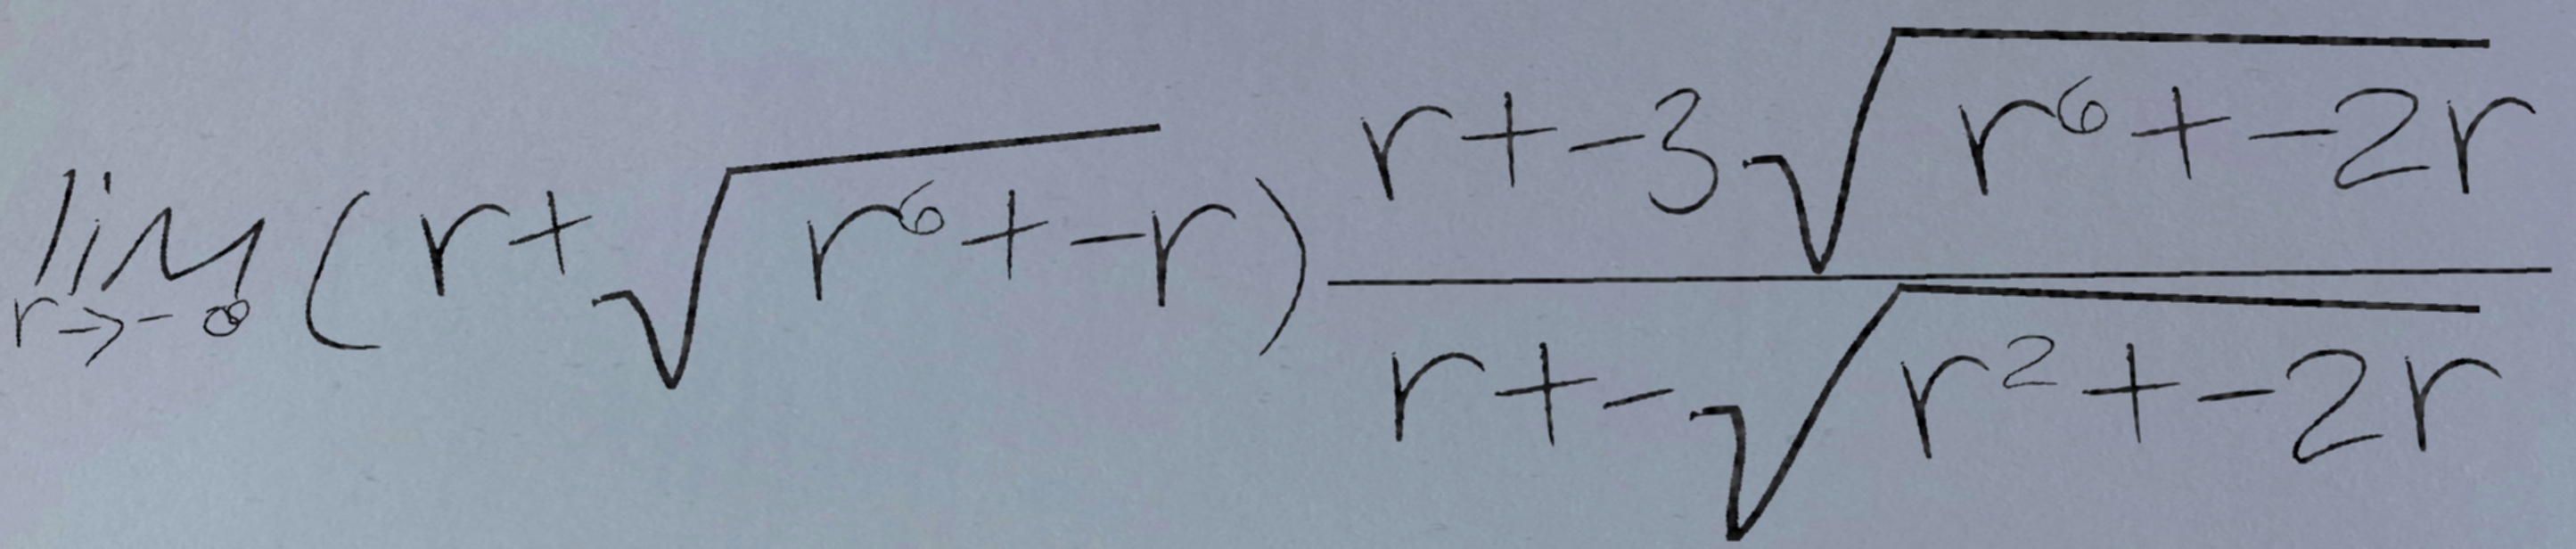 \lim_{r \to -\infty} (r + \sqrt{r^6 + -r}) \frac{r + -3\sqrt{r^6 + -2r}}{r + -\sqrt{r^2 + -2r}}